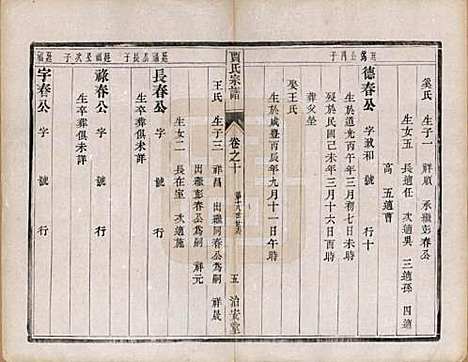 奚氏 生子一 祥順 承繼彭春公
生女五 長適任 次適吳 三適孫 四適
高 五適曹
德春公 字政和 號 行十
生於道光丙午年三月初七日未時
歿於民國己未年三月十六日亥時
葬父塋
娶王氏
生於咸豐丙辰年九月十一日午時
賈氏宗譜
卷之十
五 治安堂
王氏 生子三 祥昌 出繼彭春公為嗣 祥晟
出繼彭春公為嗣 祥元
生女二 長在室 次適施
長春公 字 號 行
生卒葬俱未詳
祿春公 字 號 行
生卒葬俱未詳
字春公 字 號 行